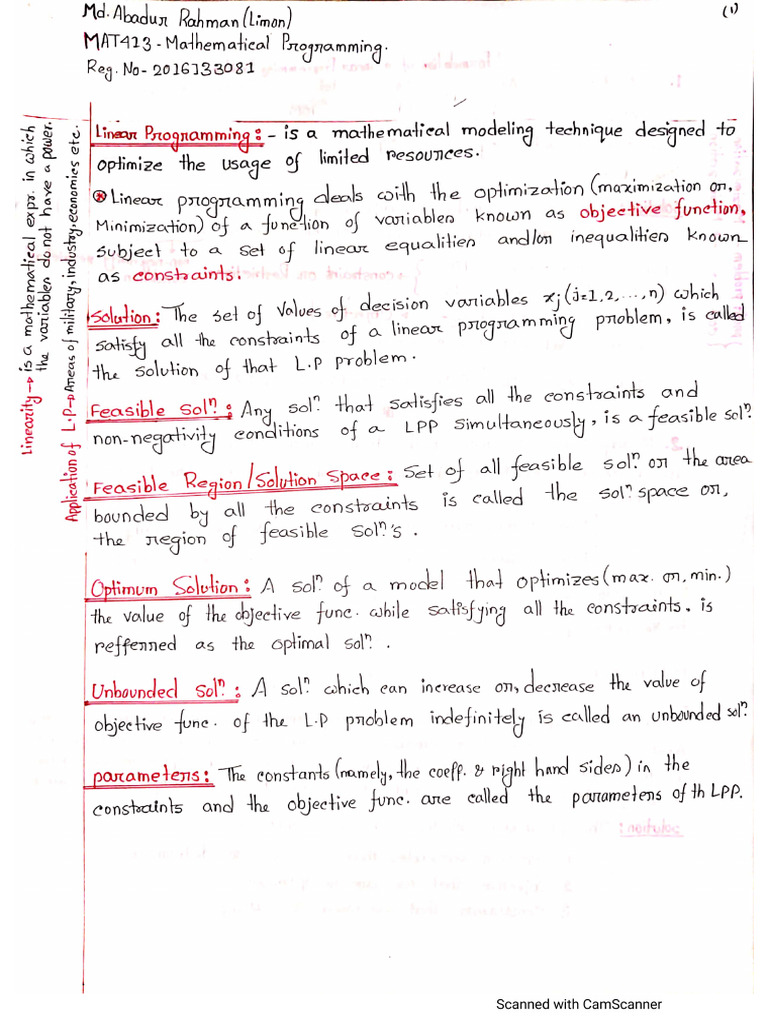 Md. Abadur Rahman (Limon)
(1)
MAT413 - Mathematical Programming.
Reg. No - 2016133081
Linear Programming: - is a mathematical modeling technique designed to
optimize the usage of limited resources.
⊛ Linear programming deals with the optimization (maximization or,
Minimization) of a function of variables known as objective function,
subject to a set of linear equalities and/or inequalities known
as constraints.
Solution: The set of values of decision variables xj (j=1,2,...,n) which
satisfy all the constraints of a linear programming problem, is called
the solution of that L.P problem.
Feasible Solⁿ: Any solⁿ that satisfies all the constraints and
non-negativity conditions of a LPP simultaneously, is a feasible solⁿ.
Feasible Region/Solution Space: Set of all feasible solⁿ or the area
bounded by all the constraints is called the solⁿ space or,
the region of feasible solⁿ's.
Optimum Solution: A solⁿ of a model that optimizes (max. or, min.)
the value of the objective func. while satisfying all the constraints, is
refferred as the optimal solⁿ.
Unbounded solⁿ: A solⁿ which can increase or, decrease the value of
objective func. of the L.P problem indefinitely is called an unbounded solⁿ.
parameters: The constants (namely, the coeff. & right hand sides) in the
constraints and the objective func. are called the parameters of th LPP.
Linearity → is a mathematical expr. in which
the variables do not have a power.
Application of L.P → Areas of military, industry, economics etc.
Scanned with CamScanner